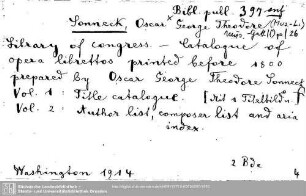 Bibl. publ. 397 mf
Sonneck, Oscar George Theodore (Mus.-L.)
Library of Congress. — Catalogue of
opera librettos printed before 1800
prepared by Oscar George Theodore Sonneck
Vol. 1: Title catalogue. [Mit 1 Titelbild u.
Vol. 2: Author list, composer list and aria
index.
2 Bde
Washington 1914